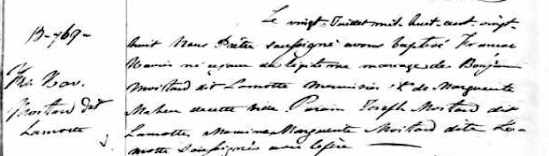 B-769-
Frs. Xav.
Moitard dit
Lamotte
Le vingt Juillet mil huit cent vingt
huit Nous Prêtre soussigné avons baptisé François
Xavier né du légitime mariage de Benjamin
Moitard dit Lamotte Menuisier & de Marguerite
de cette ville Parain Joseph Moitard dit
Lamotte, Maraine Marguerite Moitard dite La-
motte Soussignés avec le père